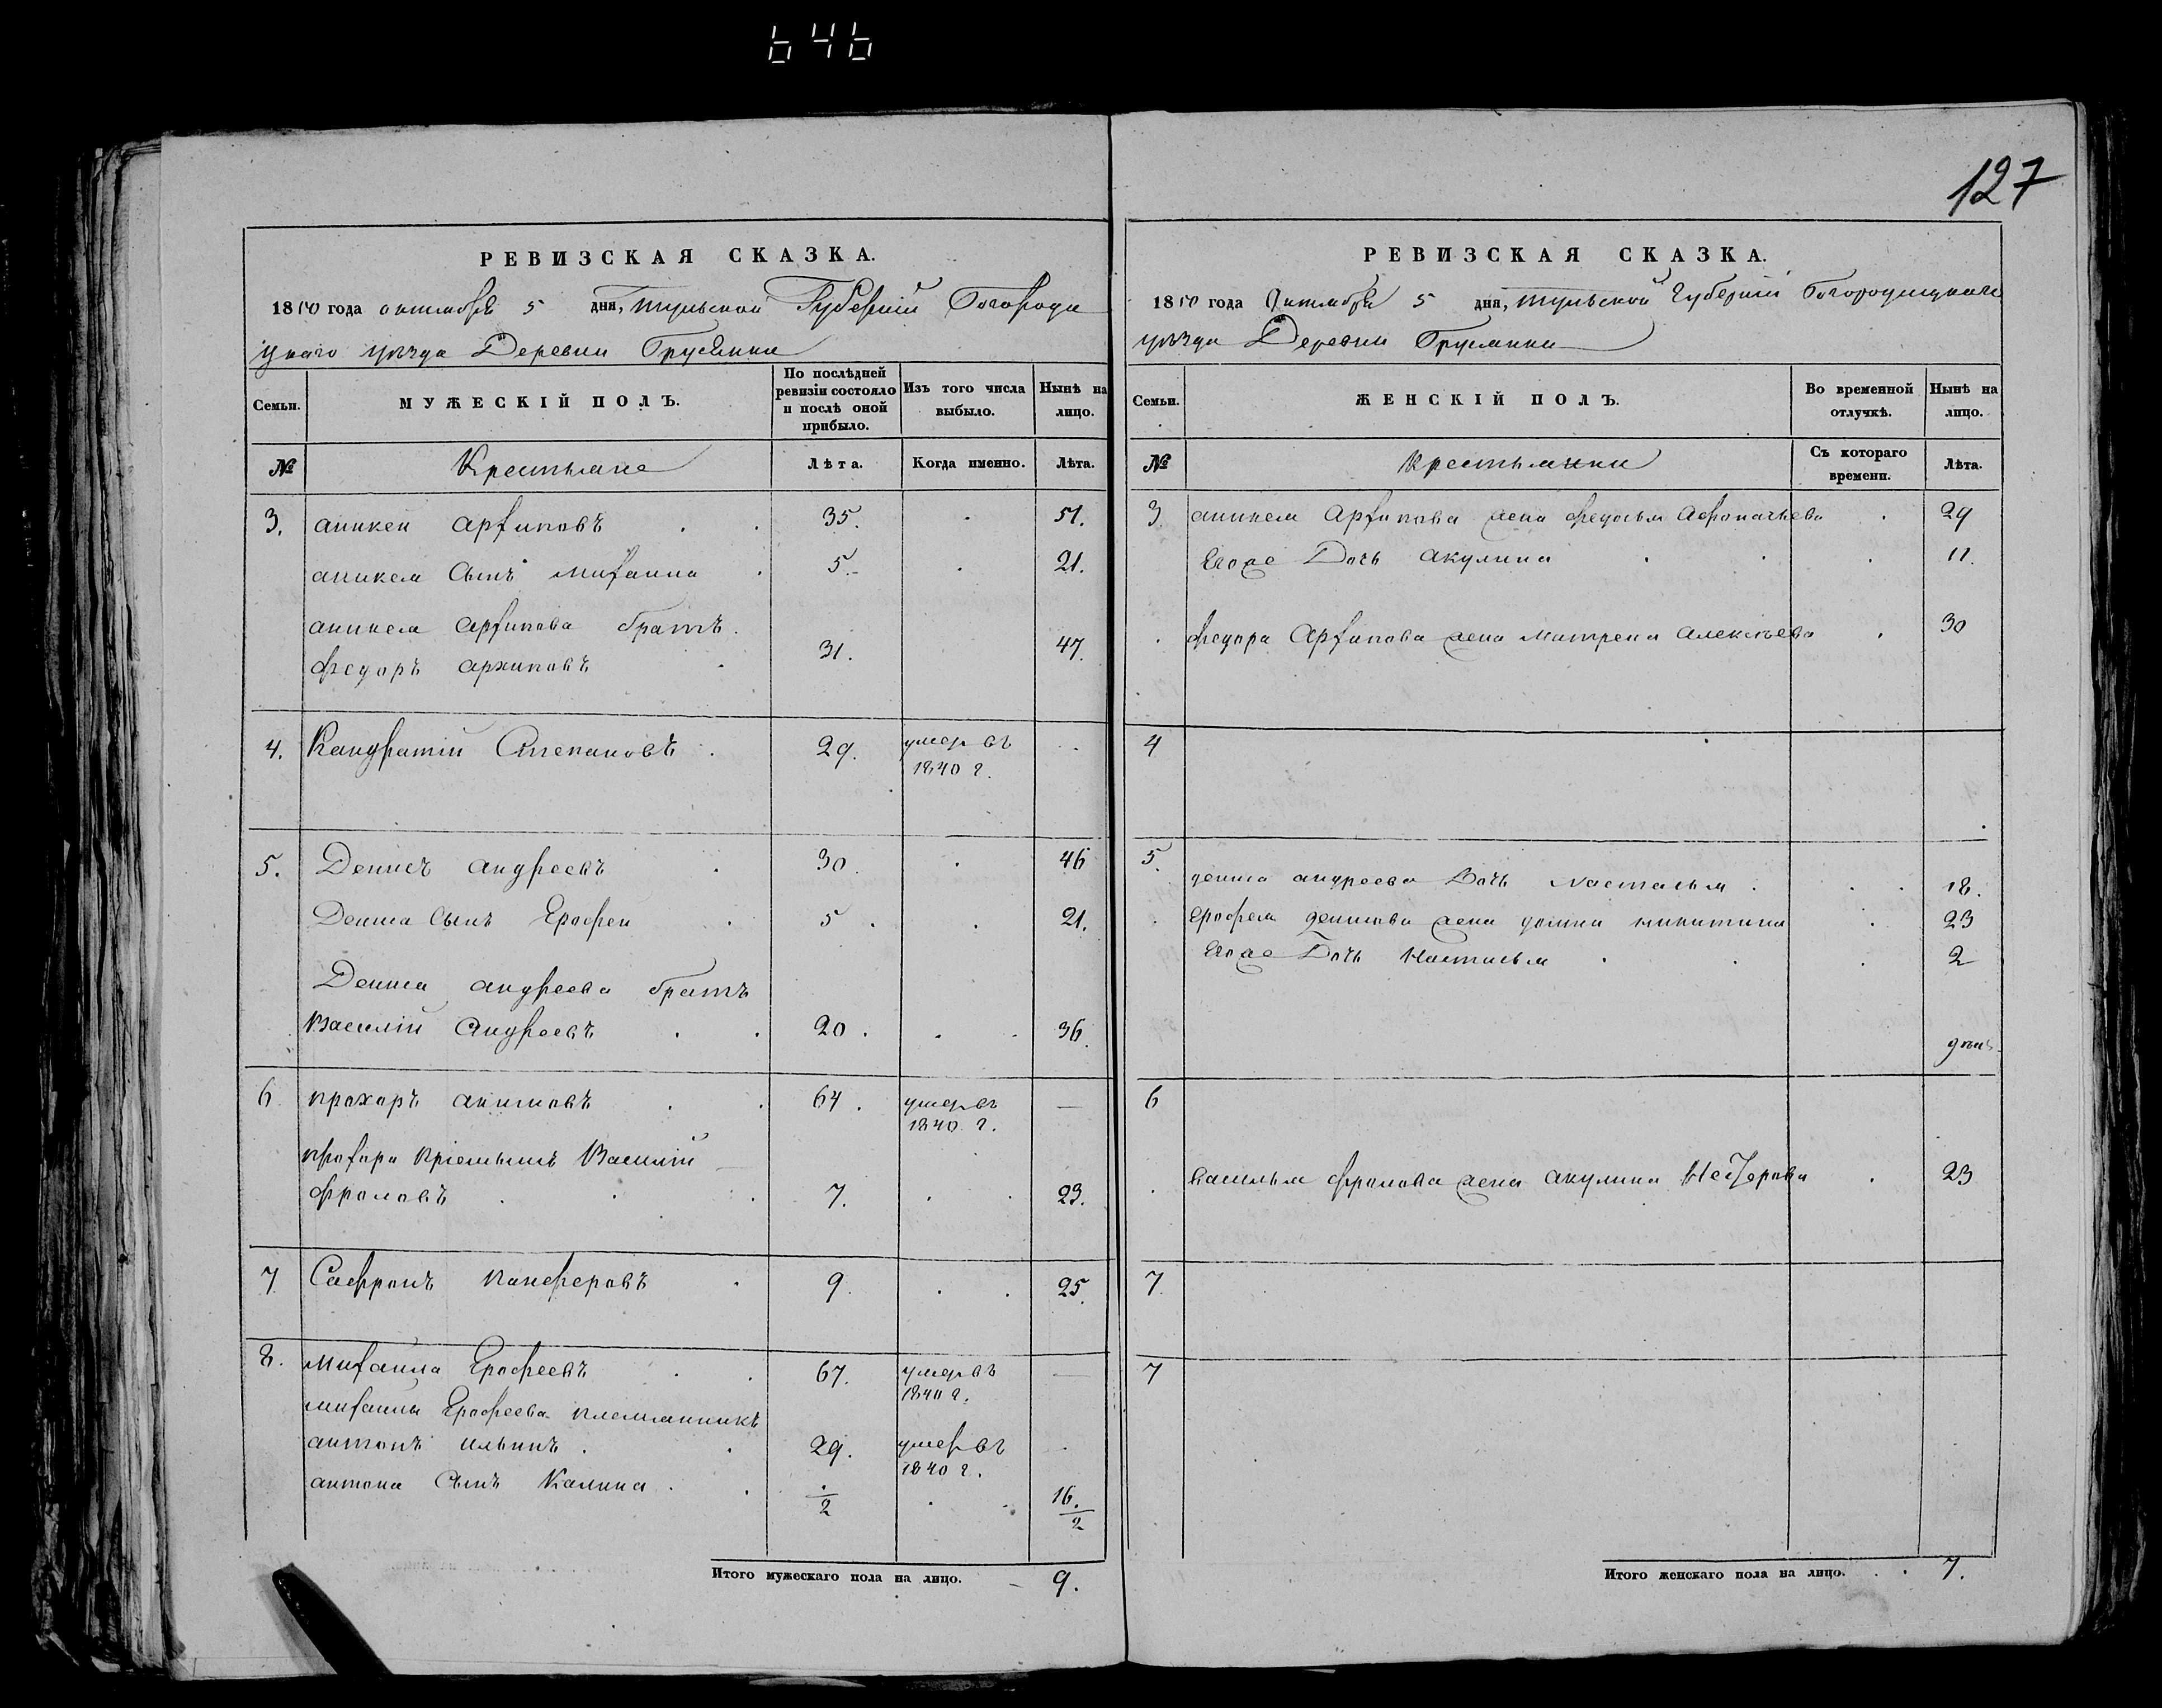 646
127
РЕВИЗСКАЯ СКАЗКА.
1850 года октября 5 дня, Тульской Губерніи Богороди
цкаго уѣзда Деревни
МУЖЕСКІЙ ПОЛЪ.
Семьи.
По послѣдней ревизіи состояло и послѣ оной прибыло.
Изъ того числа выбыло.
Нынѣ на лицо.
№ Крестьяне Лѣта. Когда именно. Лѣта.
3. аникей Архиповъ 35. 51.
аникея Сынъ михаила 5. 21.
аникея архипова братъ
федоръ архиповъ 31. 47.
4. Кандратій Степановъ 29. умеръ въ
1840 г.
5. Денисъ андреевъ 30. 46
Дениса Сынъ Ерофей 5. 21.
Дениса андреева братъ
Василій Андреевъ 20. 36.
6 прохоръ акимовъ 64. умеръ въ —
1840 г.
прохора пріемышъ Василій
фроловъ 7. 23.
7 Сафронъ панферовъ 9. 25.
8. михаила Ерофеевъ 67. умеръ въ —
1840 г.
михаилы Ерофеева племянникъ
антонъ ильинъ 29. умеръ въ
1840 г.
антона Сынъ Калина 1/2 16. 1/2
Итого мужескаго пола на лицо. — 9.
РЕВИЗСКАЯ СКАЗКА.
1850 года Октября 5 дня, Тульской Губерніи Богородицкаго
уѣзда Деревни
ЖЕНСКІЙ ПОЛЪ.
Семьи.
Во временной отлучкѣ.
Нынѣ на лицо.
№ Крестьянки Съ котораго времени. Лѣта.
3 аникея Архипова жена федосья Афонасьева 29
Егоже Дочь акулина 11.
федора Архипова жена матрена алексѣева 30
4
5. дениса андреева Дочь настасья 18.
Ерофея денисова жена домна никитина 23
Егоже Дочь Настасья 2
6
василья фролова жена акулина 23
7
7
Итого женскаго пола на лицо. 7.